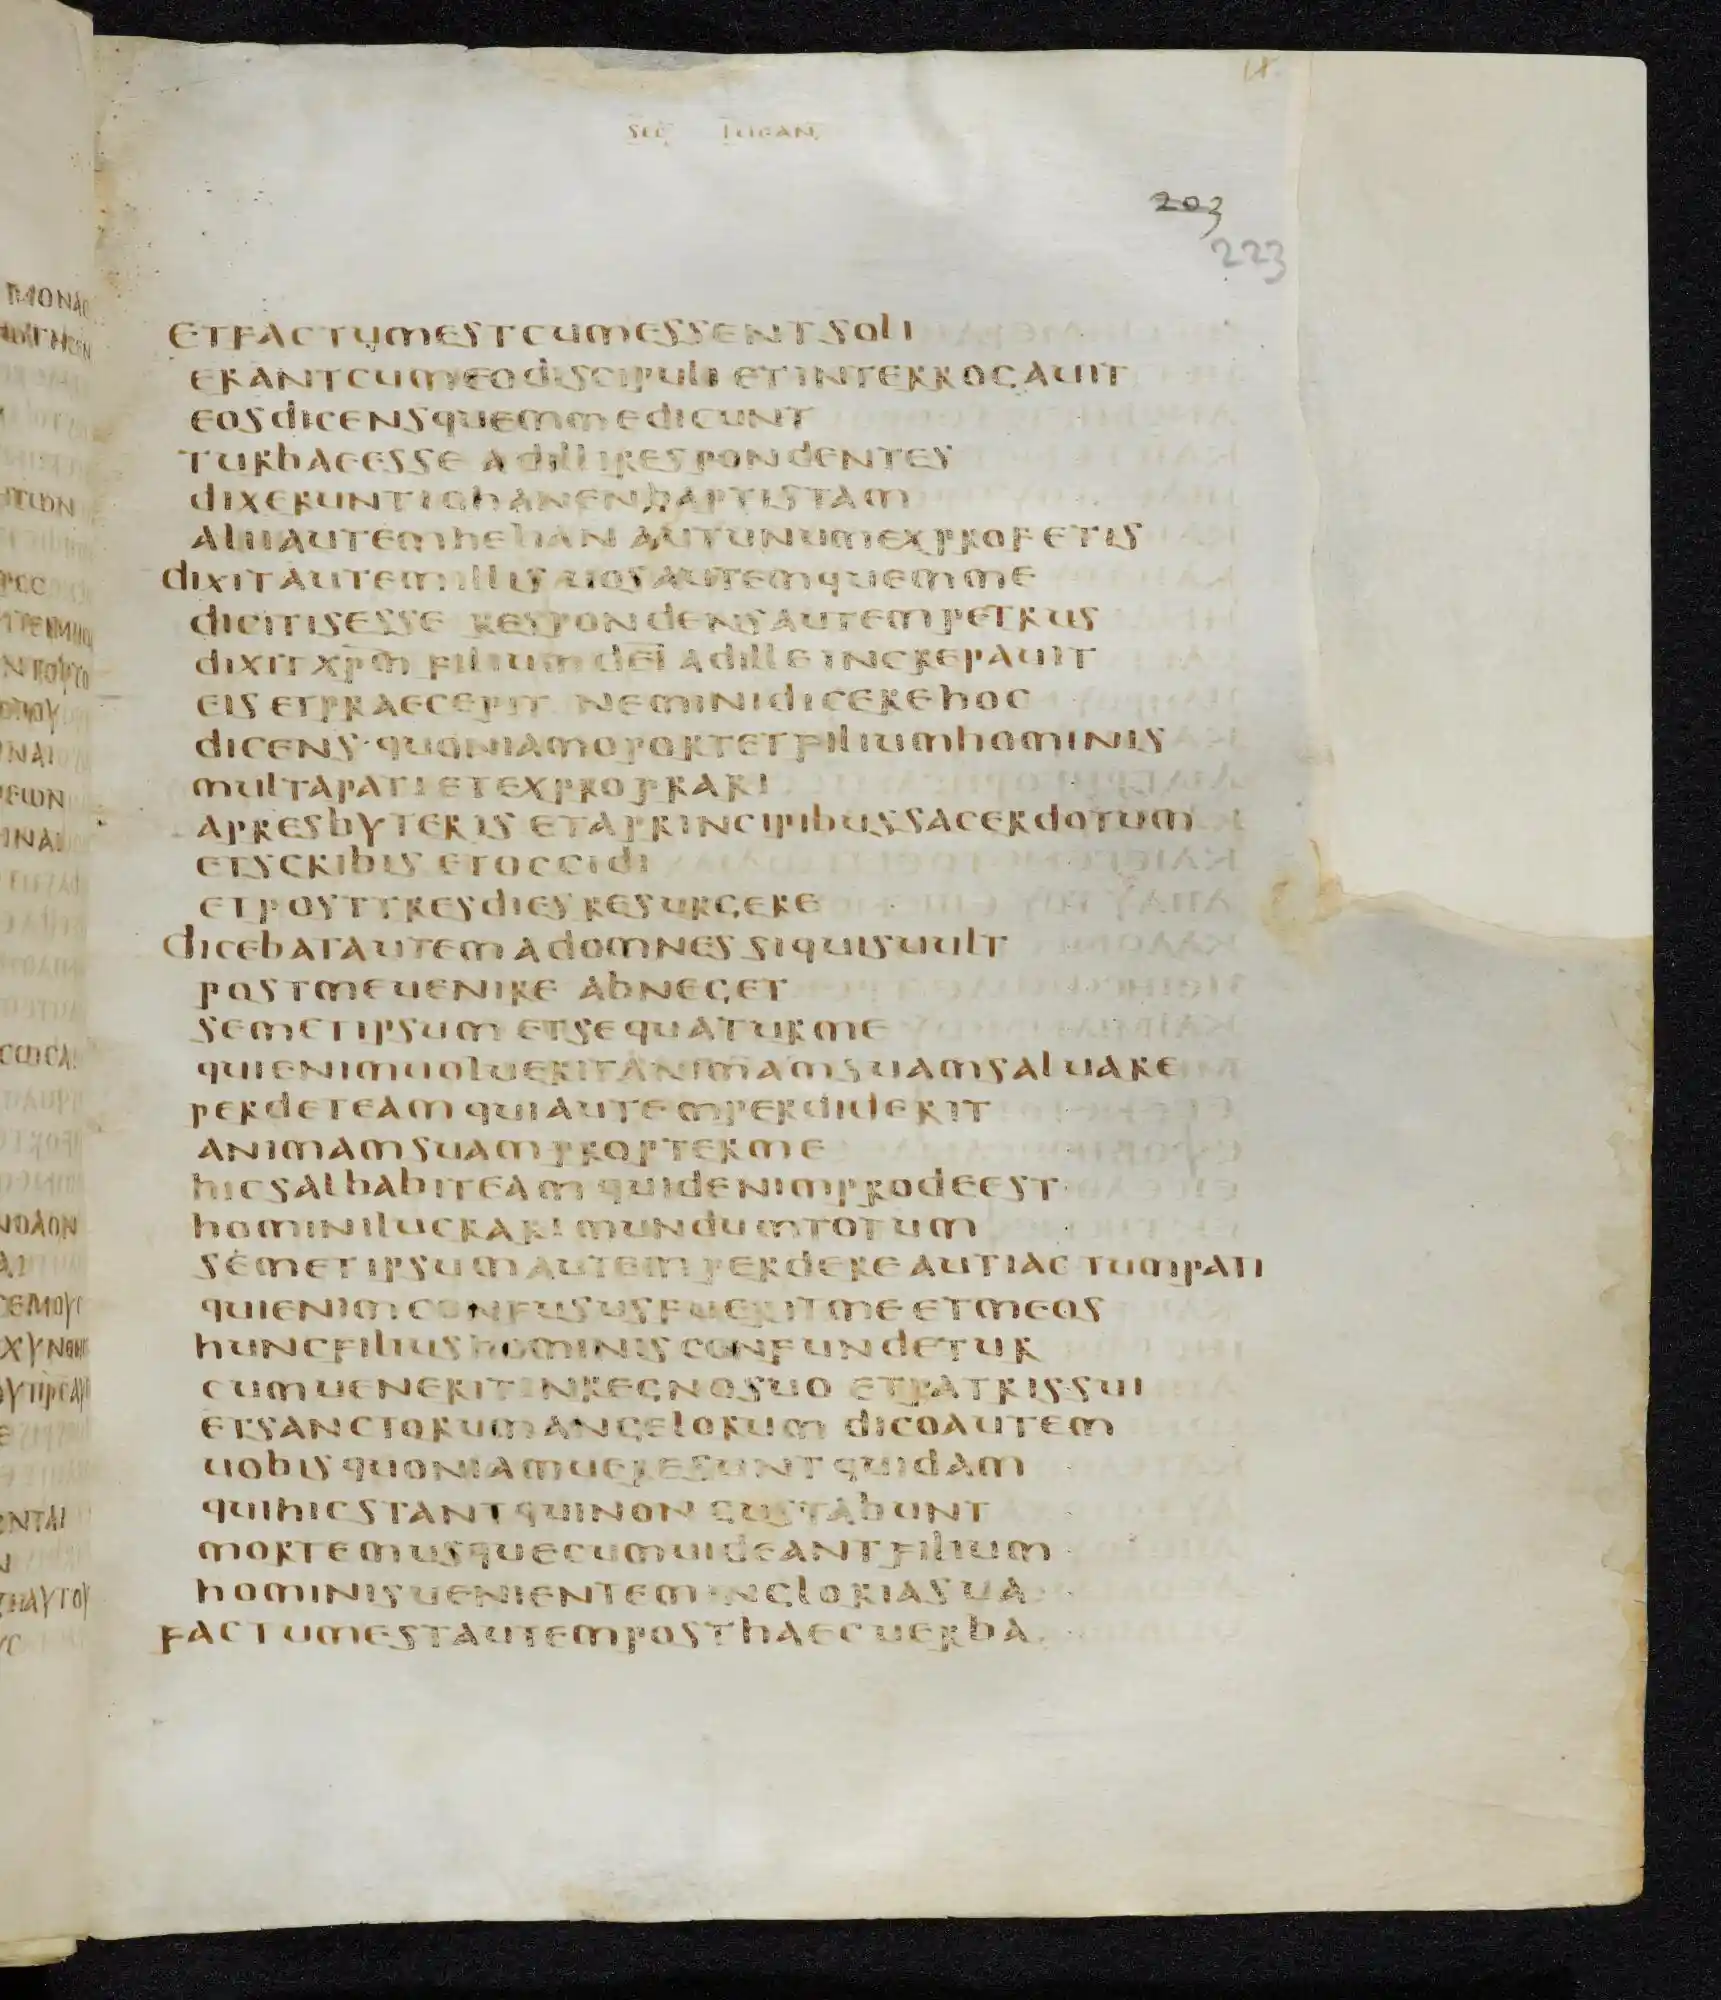 SEC LUCAN
203
223
ETFACTUMESTCUMESSENTSOLI
ERANTCUMEODISCIPULI ETINTERROGAUIT
EOSDICENSQUEMMEDICUNT
TURBAEESSE ADILLIRESPONDENTES
DIXERUNTIOHANENBAPTISTAM
ALIIAUTEMHELIAN AUTUNUMEXPROFETIS
DIXITAUTEMILLISUOSAUTEMQUEMME
DICITISESSE RESPONDENSAUTEMPETRUS
DIXITXPM̅ FILIUMDEI ADILLEINCREPAUIT
EISETPRAECEPIT NEMINIDICEREHOC
DICENS·QUONIAMOPORTETFILIUMHOMINIS
MULTAPATIETEXPROPRARI
APRESBYTERIS ETAPRINCIPIBUSSACERDOTUM
ETSCRIBIS ETOCCIDI
ETPOSTTRESDIESRESURGERE
DICEBATAUTEMADOMNES SIQUISUULT
POSTMEUENIRE ABNEGET
SEMETIPSUM ETSEQUATURME
QUIENIMUOLUERITANIMAMSUAMSALUARE
PERDETEAMQUIAUTEMPERDIDERIT
ANIMAMSUAMPROPTERME
HICSALBABITEAM QUIDENIMPRODEEST
HOMINILUCRARIMUNDUMTOTUM
SEMETIPSUMAUTEMPERDEREAUTIACTUMPATI
QUIENIMCONFUSUSFUERITMEETMEOS
HUNCFILIUSHOMINISCONFUNDETUR
CUMUENERITINREGNOSUO ETPATRISSUI
ETSANCTORUMANGELORUM DICOAUTEM
UOBISQUONIAMUERESUNTQUIDAM
QUIHICSTANTQUINON GUSTABUNT
MORTEMUSQUECUMUIDEANTFILIUM
HOMINISUENIENTEMINGLORIASUA
FACTUMESTAUTEMPOSTHAECUERBA